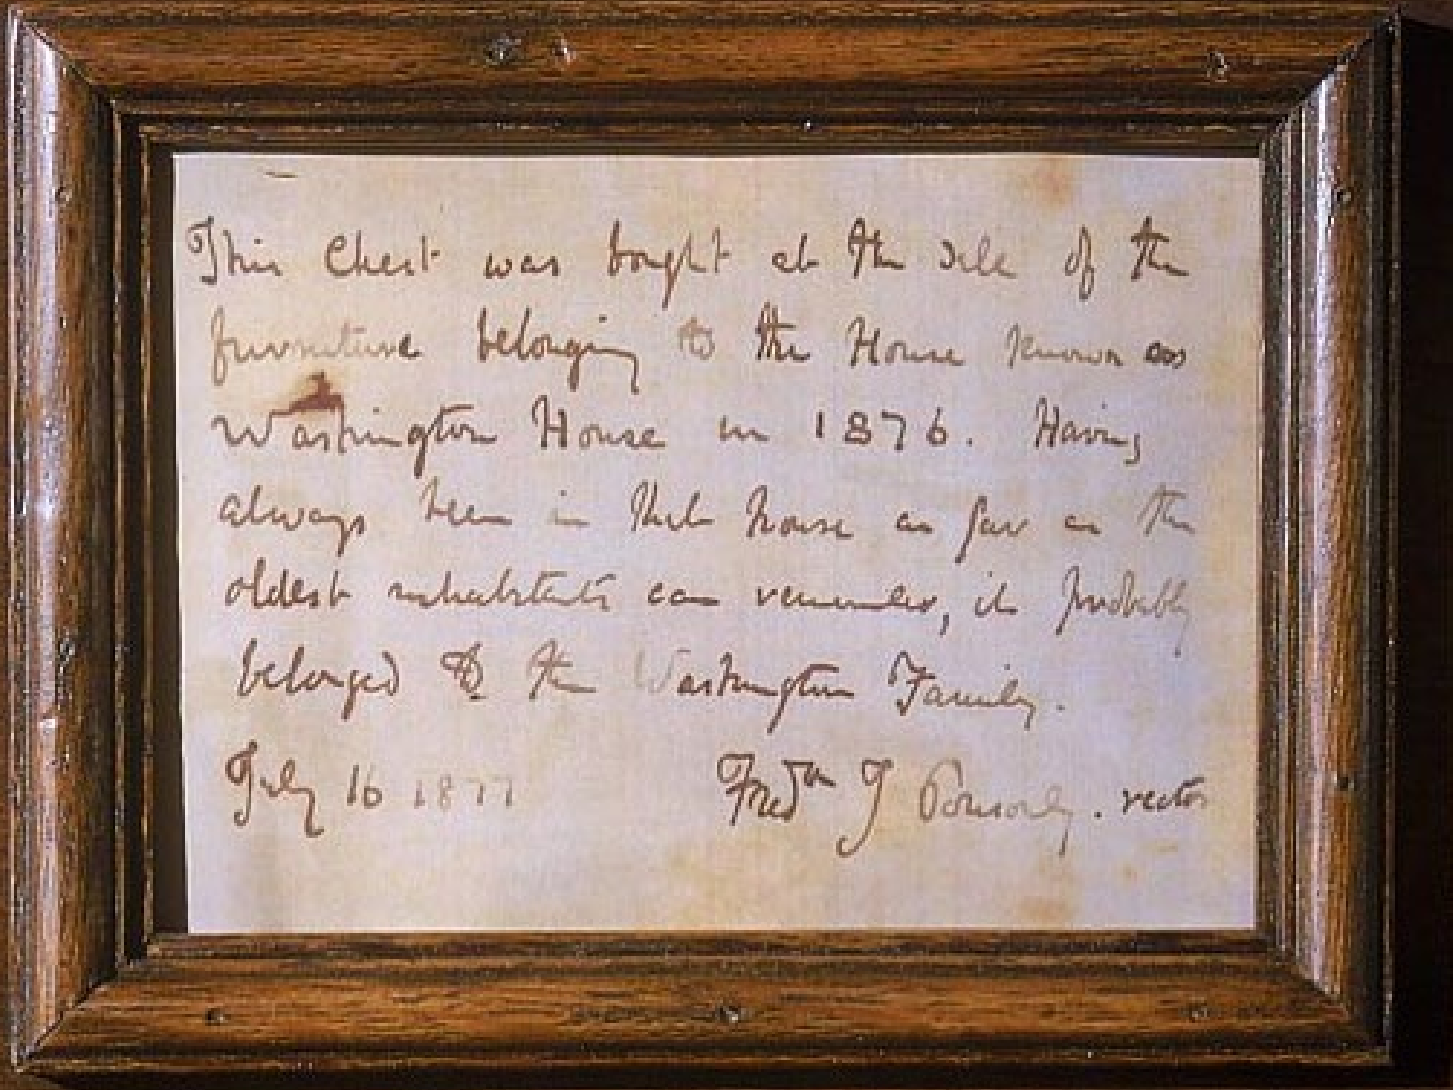 This Chest was bought at the sale of the
furniture belonging to the House known as
Washington House in 1876. Having
always been in that house as far as the
oldest inhabitants can remember, it probably
belonged to the Washington Family.
July 16 1877 Fredk T Ponsonby. rector